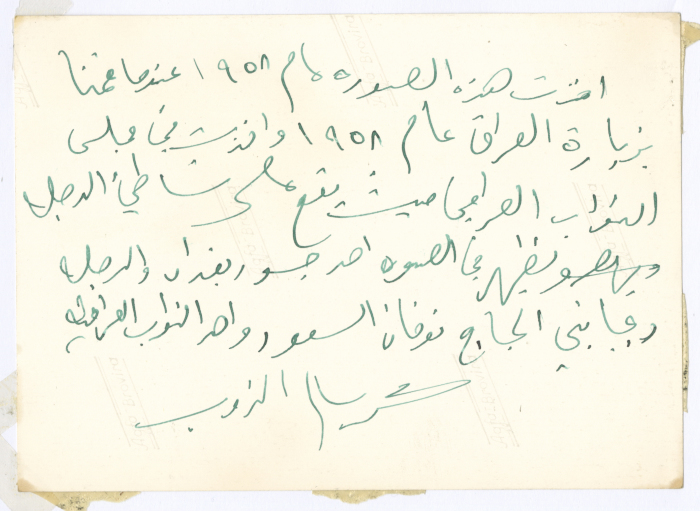 اخذت هذه الصوره عام ١٩٥٨ عندما قمنا
بزيارة العراق عام ١٩٥٨ واخذت في مجلس
النواب العراقي حيث يقع على شاطئ الدجله
ويظهر في الصوره احد جسور بغداد والدجله
وبجانبي الحاج نوفان السعود واحد النواب العراقيين
محمد سالم الذويب